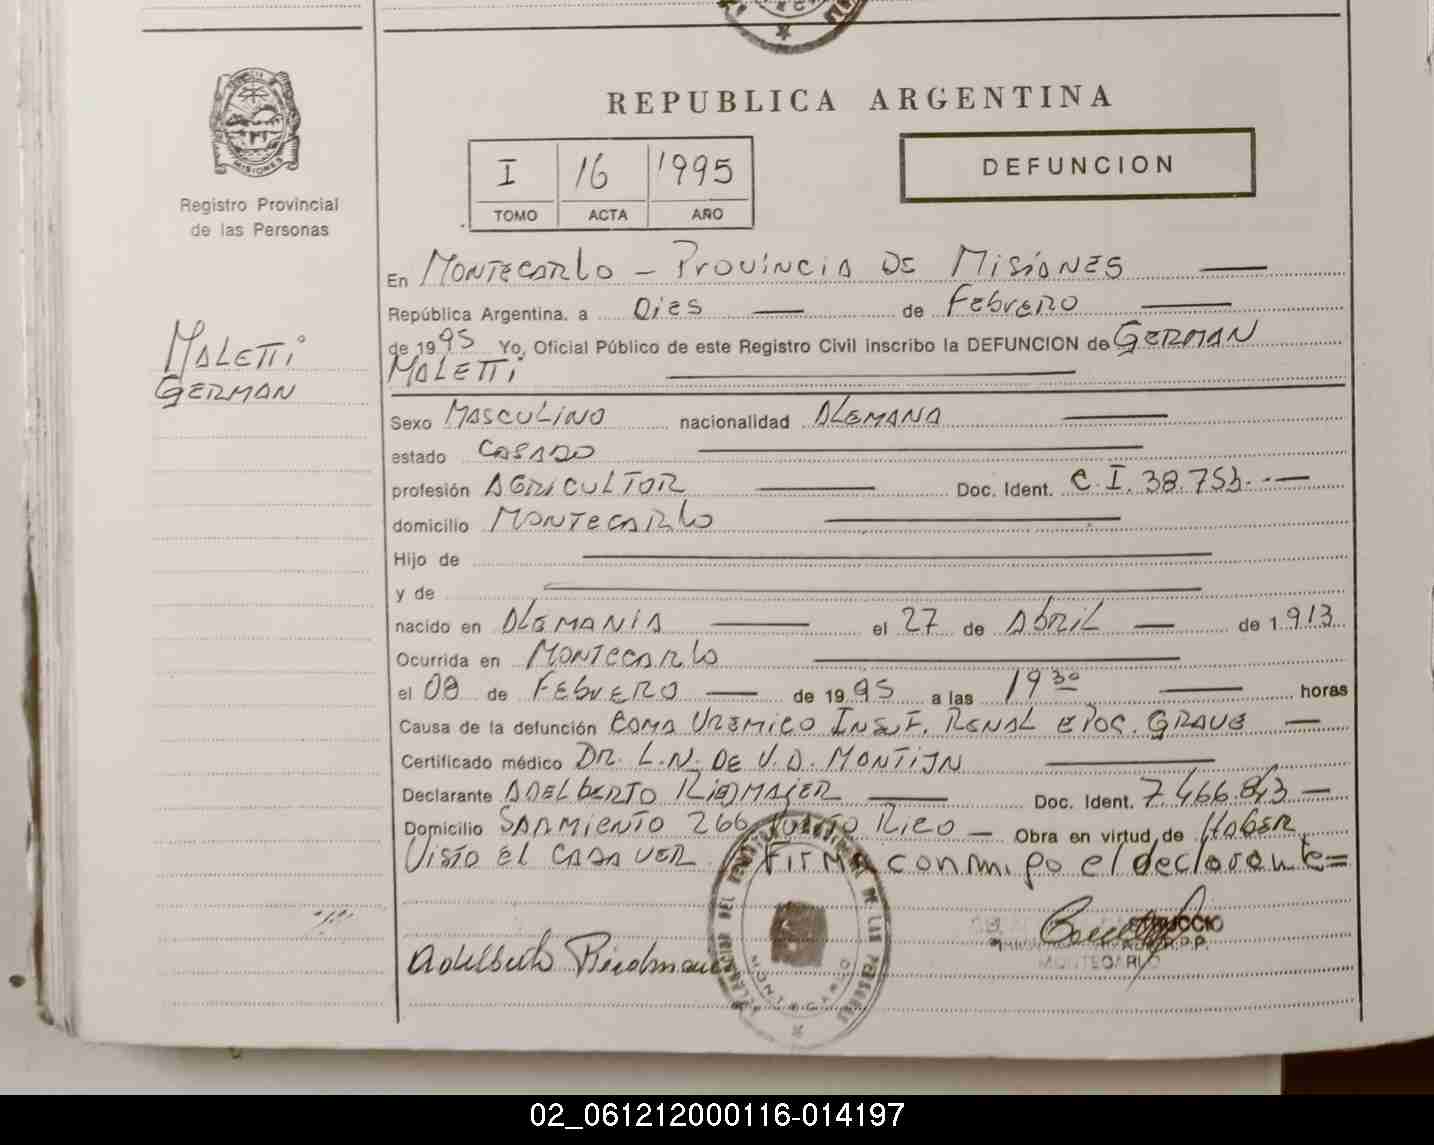 REPUBLICA ARGENTINA
I 16 1995
TOMO ACTA AÑO
DEFUNCION
MISIONES
Registro Provincial
de las Personas
MALETTi
GERMAN
En MONTECARLO - PROVINCIA DE MISIONES
República Argentina, a DiES de FEBRERO
de 1995 Yo, Oficial Público de este Registro Civil inscribo la DEFUNCION de GERMAN
MALETTi
Sexo MASCULINO nacionalidad ALEMANA
estado CASADO
profesión AGRICULTOR Doc. Ident. C.I. 38.753.-
domicilio MONTECARLO
Hijo de
y de
nacido en ALEMANIA el 27 de ABRIL de 1.913
Ocurrida en MONTECARLO
el 08 de FEBRERO de 1995 a las 19 30 horas
Causa de la defunción COMA UREMICO INSUF. RENAL EPOC. GRAVE
Certificado médico DR. L.N. DE V.D. MONTIJN
Declarante ADELBERTO RIEDMAJER Doc. Ident. 7.466.843
Domicilio SARMIENTO 266 PUERTO RICO - Obra en virtud de HABER
VISTO EL CADAVER. FIRMA conmigo el declarante=
MONTECARLO
MONTECARLO
02_061212000116-014197